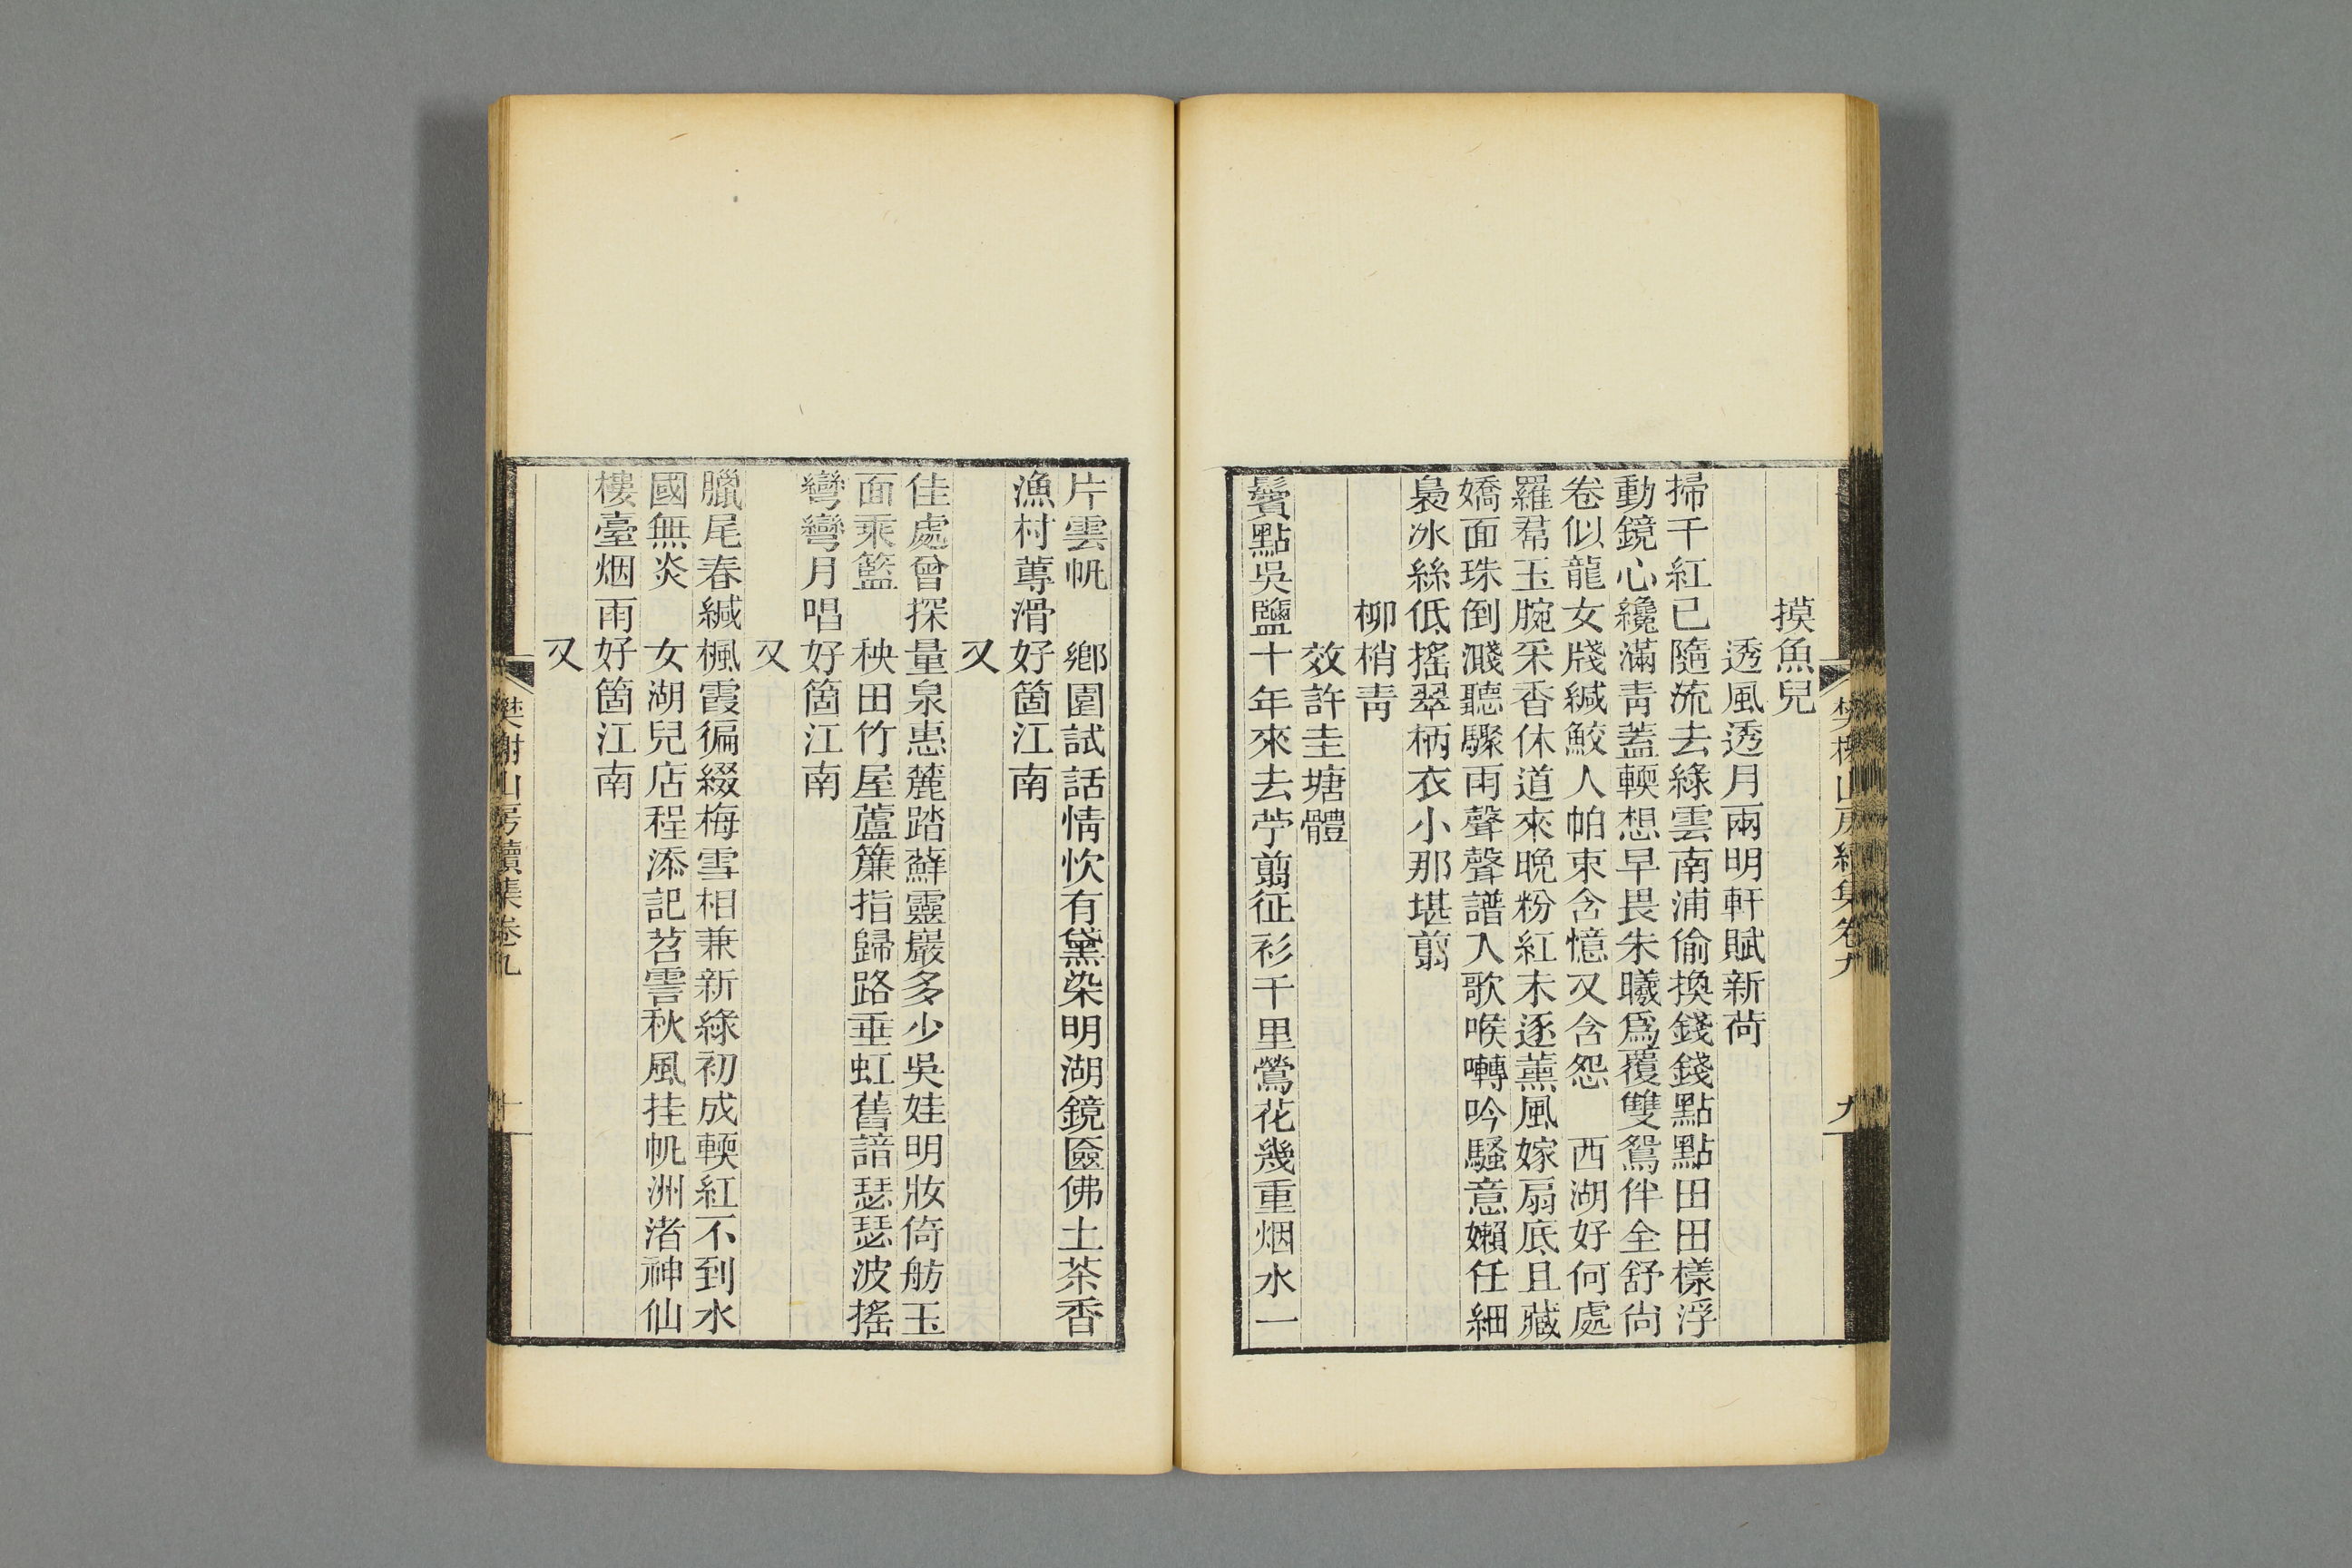 樊榭山房續集卷九
九
摸魚兒
透風透月兩明軒賦新荷
掃千紅已隨流去綠雲南浦偷換錢錢點點田田樣浮
動鏡心纔滿靑蓋輭想早畏朱曦爲覆雙鴛伴全舒尙
卷似龍女牋緘鮫人帕束含憶又含怨　西湖好何處
羅帬玉腕采香休道來晩粉紅未逐薰風嫁扇底且藏
嬌面珠倒濺聽驟雨聲聲譜入歌喉囀吟騷意嬾任細
裊冰絲低搖翠柄衣小那堪翦
柳梢靑
效許圭塘體
鬢點吳鹽十年來去苧翦征衫千里鶯花幾重烟水一
片雲帆　鄉園試話情忺有黛染明湖鏡匳佛土茶香
漁村蓴滑好箇江南
又
佳處曾探量泉惠麓踏蘚靈巖多少吳娃明妝倚舫玉
面乘籃　秧田竹屋蘆簾指歸路垂虹舊諳瑟瑟波搖
彎彎月唱好箇江南
又
臘尾春緘楓霞徧綴梅雪相兼新綠初成輭紅不到水
國無炎　女湖兒店程添記苕霅秋風挂帆洲渚神仙
樓臺烟雨好箇江南
又
樊榭山房續集卷九
十